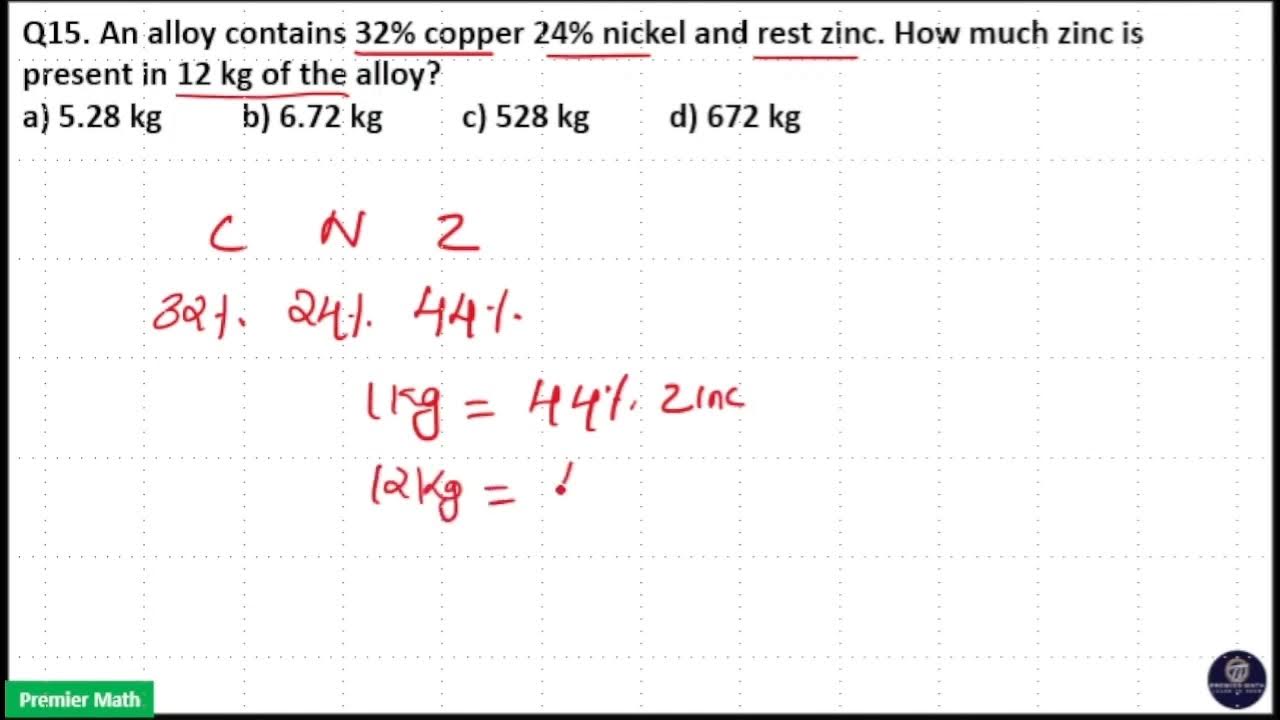 Q15. An alloy contains 32% copper 24% nickel and rest zinc. How much zinc is
present in 12 kg of the alloy?
a) 5.28 kg b) 6.72 kg c) 528 kg d) 672 kg
C N Z
32% 24% 44%
1 kg = 44% Zinc
12 kg =
Premier Math